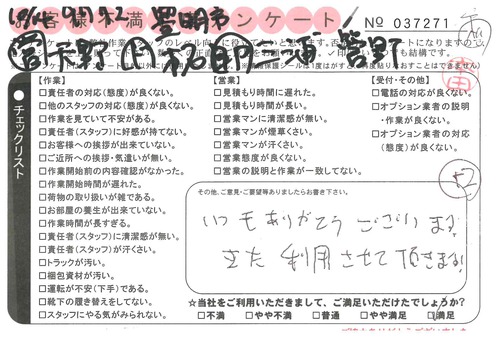 お客様不満アンケート
№ 037271
チェックリスト
【作業】
□責任者の対応(態度)が良くない。
□他のスタッフの対応(態度)が良くない。
□作業を見ていて不安がある。
□責任者(スタッフ)に好感が持てない。
□お客様への挨拶が出来ていない。
□ご近所への挨拶・気遣いが無い。
□作業開始前の内容確認がなかった。
□作業開始時間が遅れた。
□荷物の取り扱いが雑である。
□お部屋の養生が出来ていない。
□作業時間が長すぎる。
□責任者(スタッフ)に清潔感が無い。
□責任者(スタッフ)が汗くさい。
□トラックが汚い。
□梱包資材が汚い。
□運転が不安(下手)である。
□靴下の履き替えをしてない。
□スタッフにやる気がみられない。
【営業】
□見積もり時間に遅れた。
□見積もり時間が長い。
□営業マンに清潔感が無い。
□営業マンが煙草くさい。
□営業マンが汗くさい。
□営業態度が良くない。
□営業の説明と作業が一致してない。
【受付・その他】
□電話の対応が良くない。
□オプション業者の説明
・作業が良くない。
□オプション業者の対応
(態度)が良くない。
その他、ご意見・ご要望等ありましたらお書き下さい。
いつもありがとうございます
また利用させて頂きます!
☆当社をご利用いただきまして、ご満足いただけたでしょうか?
□不満 □やや不満 □普通 □やや満足 □満足